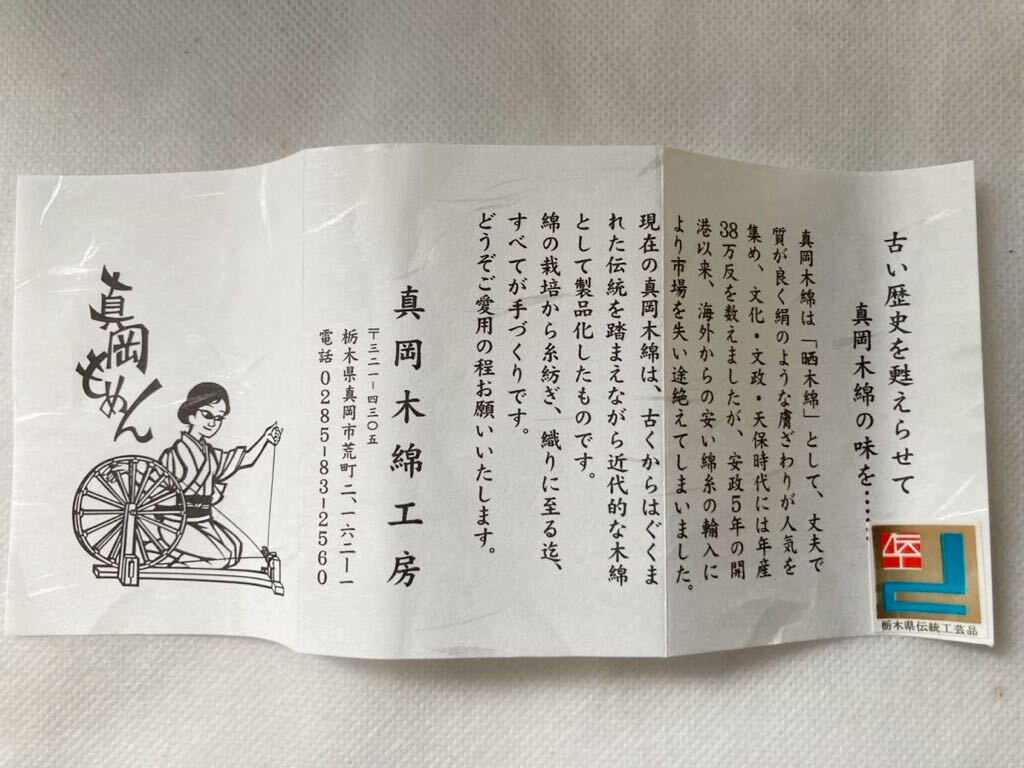 古い歴史を甦えらせて
真岡木綿の味を……
真岡木綿は「晒木綿」として、丈夫で
質が良く絹のような膚ざわりが人気を
集め、文化・文政・天保時代には年産
38万反を数えましたが、安政5年の開
港以来、海外からの安い綿糸の輸入に
より市場を失い途絶えてしまいました。
現在の真岡木綿は、古くからはぐくま
れた伝統を踏まえながら近代的な木綿
として製品化したものです。
綿の栽培から糸紡ぎ、織りに至る迄、
すべてが手づくりです。
どうぞご愛用の程お願いいたします。
真岡木綿工房
〒三二一-四三〇五
栃木県真岡市荒町二、一六二-一
電話0285-83-2560
真岡
もめん
伝
栃木県伝統工芸品